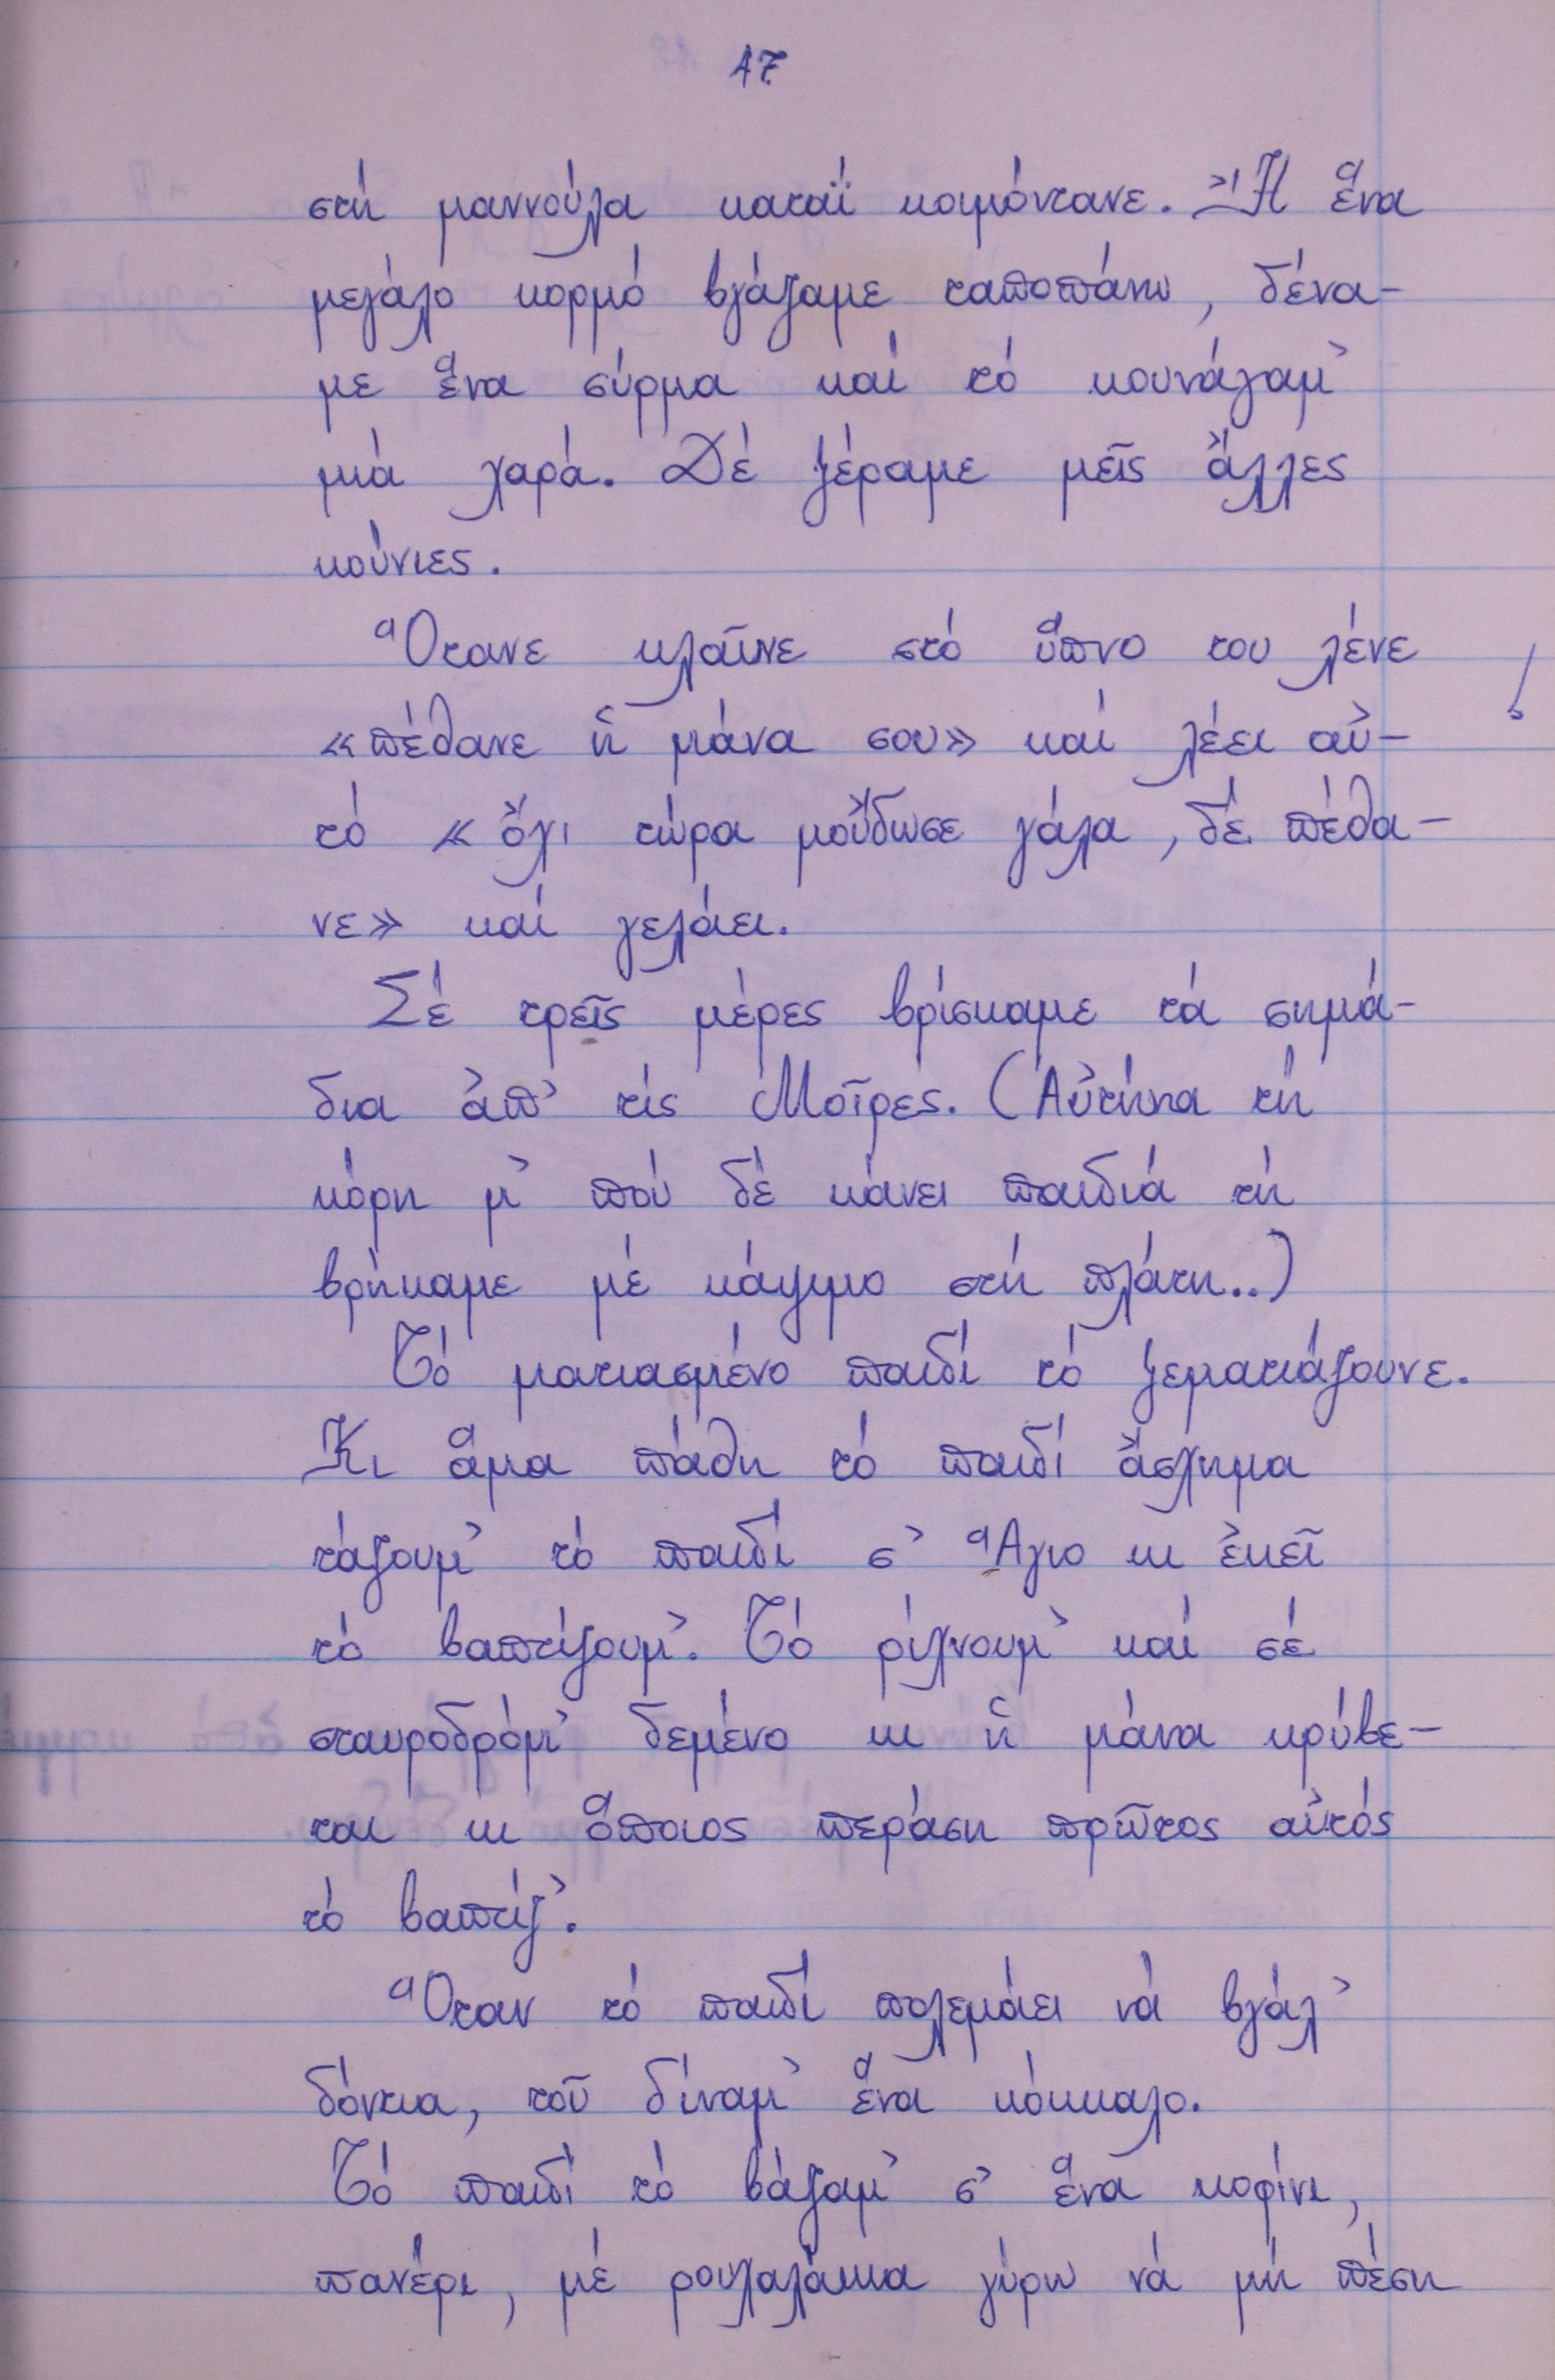 17
στή μαννούλα καταΐ κοιμόντανε. Ἤ ἕνα
μεγάλο κορμό βγάζαμε ταποπάνω, δένα-
με ἕνα σύρμα καί τό κουνάγαμ᾿
μιά χαρά. Δέ ξέραμε μεῖς ἄλλες
κούνιες.
Ὅτανε κλαῖνε στό ὕπνο του λένε
«πέθανε ἡ μάνα σου» καί λέει αὐ-
τό «ὄχι τώρα μοὔδωσε γάλα, δέ πέθα-
νε» καί γελάει.
Σέ τρεῖς μέρες βρίσκαμε τά σημά-
δια ἀπ᾿ τίς Μοῖρες. (Αὐτήνα τή
κόρη μ᾿ πού δέ κάνει παιδιά τή
βρήκαμε μέ κάψιμο στή πλάτη..)
Τό ματιασμένο παιδί τό ξεματιάζουνε.
Κι ἅμα πάθη τό παιδί ἄσχημα
τάζουμ᾿ τό παιδί σ᾿ Ἅγιο κι ἐκεῖ
τό βαπτίζουμ᾿. Τό ρίχνουμ᾿ καί σέ
σταυροδρόμ᾿ δεμένο κι ἡ μάνα κρύβε-
ται κι ὅποιος περάση πρῶτος αὐτός
τό βαπτίζ᾿.
Ὅταν τό παιδί πολεμάει νά βγάλ᾿
δόντια, τοῦ δίναμ᾿ ἕνα κόκκαλο.
Τό παιδί τό βάζαμ᾿ σ᾿ ἕνα κοφίνι,
πανέρι, μέ ρουχαλάκια γύρω νά μή πέση